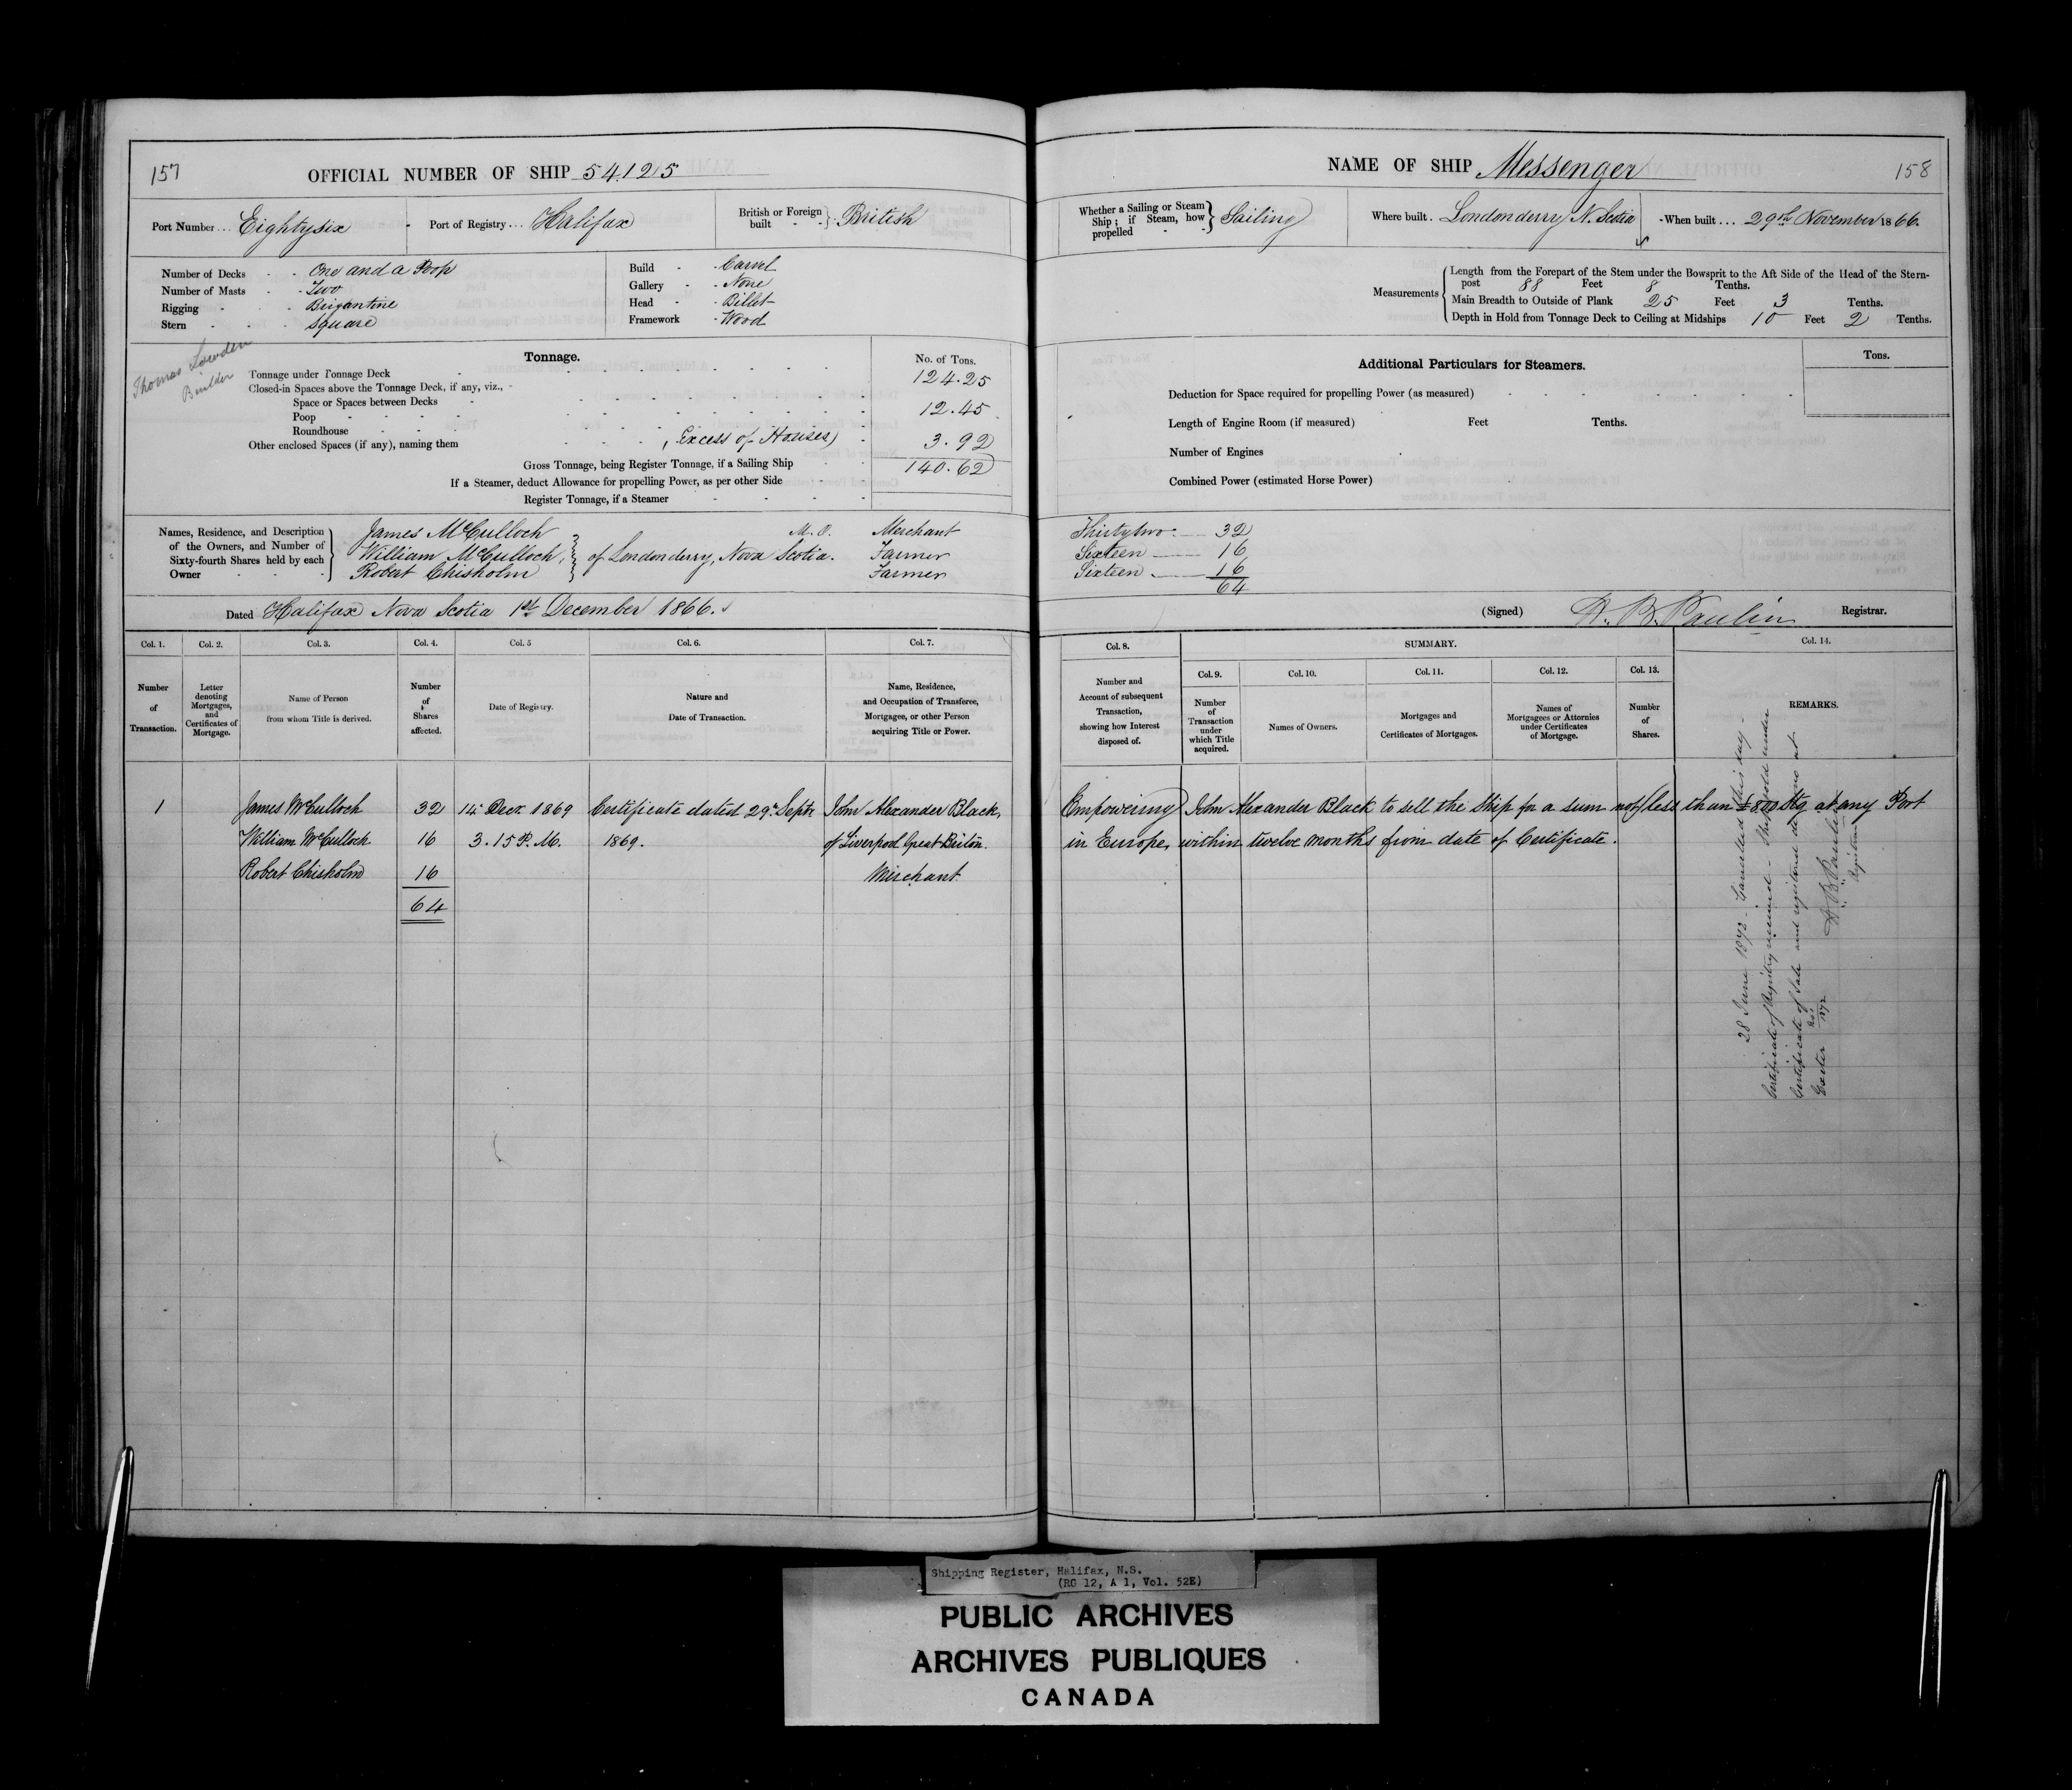 157
OFFICIAL NUMBER OF SHIP 54.125
Port Number... Eightysix
Port of Registry... Halifax
British or Foreign built - - } British
Number of Decks - - One and a Poop
Number of Masts - - Two
Rigging - - - Brigantine
Stern - - - Square
Build - - Carvel
Gallery - - None
Head - - Billet
Framework - Wood
Thomas Lowden
Builder
Tonnage.
No. of Tons.
Tonnage under Tonnage Deck 124.25
Closed-in Spaces above the Tonnage Deck, if any, viz.,
Space or Spaces between Decks
Poop 12.45
Roundhouse
Other enclosed Spaces (if any), naming them (Excess of Houses) 3.92
Gross Tonnage, being Register Tonnage, if a Sailing Ship 140.62
If a Steamer, deduct Allowance for propelling Power, as per other Side
Register Tonnage, if a Steamer
Names, Residence, and Description of the Owners, and Number of Sixty-fourth Shares held by each Owner
James McCulloch M.O. Merchant
William McCulloch, } of Londonderry, Nova Scotia. Farmer
Robert Chisholm Farmer
Dated Halifax Nova Scotia 1st December 1866.
Col. 1. Col. 2. Col. 3. Col. 4. Col. 5 Col. 6. Col. 7.
Number of Transaction.
Letter denoting Mortgages, and Certificates of Mortgage.
Name of Person from whom Title is derived.
Number of Shares affected.
Date of Registry.
Nature and Date of Transaction.
Name, Residence, and Occupation of Transferee, Mortgagee, or other Person acquiring Title or Power.
1 James McCulloch 32 14 Decr 1869 Certificate dated 29th Septr John Alexander Black,
William McCulloch 16 3.15 P.M. 1869. of Liverpool Great Britain
Robert Chisholm 16 Merchant
64
NAME OF SHIP Messenger
158
Whether a Sailing or Steam Ship; if Steam, how propelled - - } Sailing
Where built. Londonderry N. Scotia
When built.... 29th November 1866.
Measurements
Length from the Forepart of the Stem under the Bowsprit to the Aft Side of the Head of the Stern-
post 88 Feet 8 Tenths.
Main Breadth to Outside of Plank 25 Feet 3 Tenths.
Depth in Hold from Tonnage Deck to Ceiling at Midships 10 Feet 2 Tenths.
Additional Particulars for Steamers.
Tons.
Deduction for Space required for propelling Power (as measured)
Length of Engine Room (if measured) Feet Tenths.
Number of Engines
Combined Power (estimated Horse Power)
Thirtytwo 32
Sixteen 16
Sixteen 16
64
(Signed) H. B. Paulin Registrar.
Col. 8. SUMMARY. Col. 14.
Col. 9. Col. 10. Col. 11. Col. 12. Col. 13.
Number and Account of subsequent Transaction, showing how Interest disposed of.
Number of Transaction under which Title acquired.
Names of Owners.
Mortgages and Certificates of Mortgages.
Names of Mortgagees or Attornies under Certificates of Mortgage.
Number of Shares.
REMARKS.
Empowering John Alexander Black to sell the Ship for a sum not less than £800 Stg at any Port
in Europe, within twelve months from date of Certificate.
28 June 1872 - Cancelled this day -
Certificate of Registry received - Ship sold under
Certificate of Sale and registered de novo at
Exeter No. 1872
H B Paulin
Registrar
Shipping Register, Halifax, N.S.
(RG 12, A 1, Vol. 52E)
PUBLIC ARCHIVES
ARCHIVES PUBLIQUES
CANADA